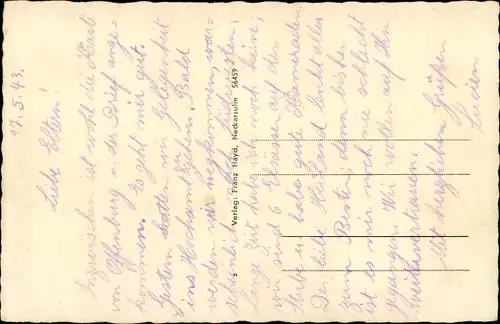 17.5.43.
Liebe Eltern!
Inzwischen ist wohl die Karte
von Offenburg u. der Brief ange-
kommen. Es geht mir gut.
Gestern hatten wir Gelegenheit
ins Hochamt zu gehen. Bald
werden wir wegkommen, wahr-
scheinlich
lange Zeit habe ich noch keine,
wir sind 6 Elsässer auf der
Stube u. habe gute Kameraden.
Der liebe Heiland lenkt alles
zum Besten, denn bisher
ist es mir noch nie schlecht
gegangen. Wir wollen auf Ihn
weitervertrauen.
Mit herzlichen Grüßen
2 Verlag: Franz Hayd, Neckarsulm 56459